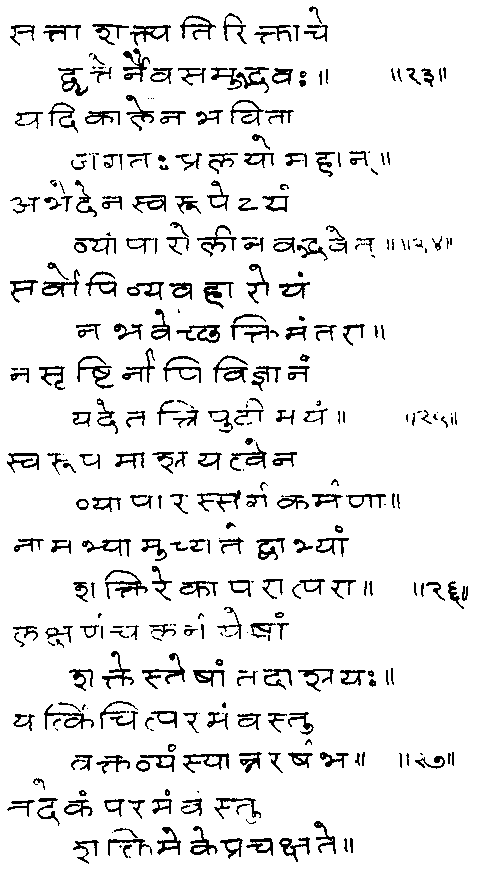 सत्ता शक्त्यतिरिक्ताचे
द्वृत्तेर्नैवसमुद्भवः॥ ॥२३॥
यदिकालेनभविता
जगतःप्रलयोमहान्॥
अभेदेनस्वरूपेऽयं
व्यापारोलीनवद्भवेत्॥॥२४॥
सर्वोपिव्यवहारोयं
नभवेच्छक्तिमंतरा॥
नसृष्टिर्नापिविज्ञानं
यदेतत्त्रिपुटीमयं॥ ॥२५॥
स्वरूपमाश्रयत्वेन
व्यापारस्सर्गकर्मणा॥
नामभ्यामुच्यतेद्वाभ्यां
शक्तिरेकापरात्परा॥ ॥२६॥
लक्षणंचलनंयेषां
शक्तेस्तेषांतदाश्रयः॥
यत्किंचित्परमंवस्तु
वक्तव्यंस्यान्नरर्षभ॥ ॥२७॥
तदेकंपरमंवस्तु
शक्तिमेकेप्रचक्षते॥